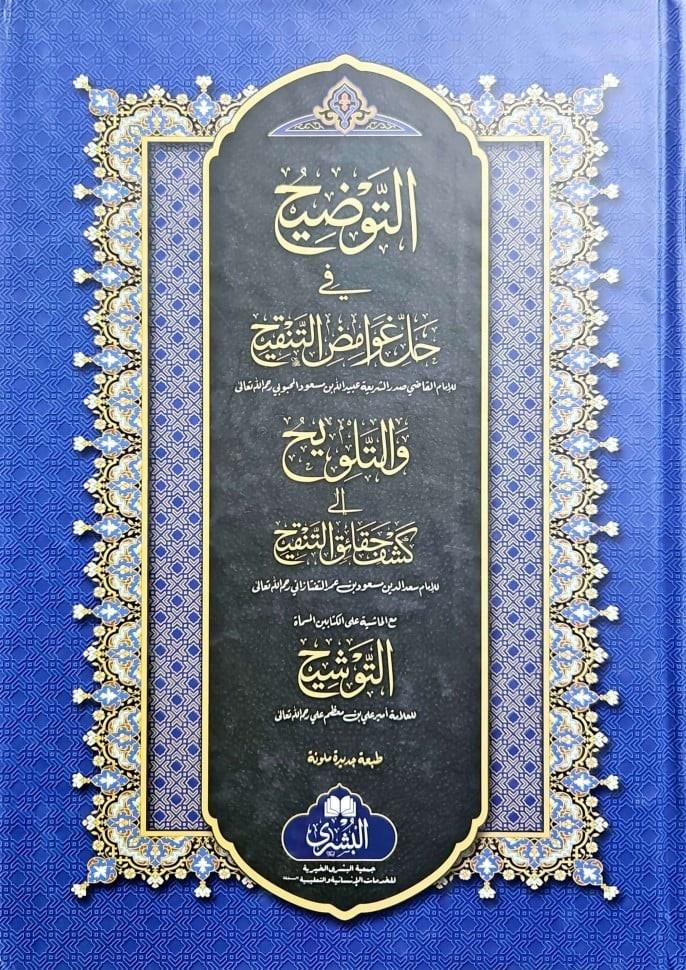 التَّوْضِيحُ
فِي
حَلِّ غَوَامِضِ التَّنْقِيحِ
للإمام القاضي صدر الشريعة عبيد الله بن مسعود المحبوبي رحمه الله تعالى
وَالتَّلْوِيحُ
إِلَى
كَشْفِ حَقَائِقِ التَّنْقِيحِ
للإمام سعد الدين مسعود بن عمر التفتازاني رحمه الله تعالى
مع الحاشية على الكتابين المسماة
التَّوْشِيحُ
للعلامة أمير علي بن معظم علي رحمه الله تعالى
طبعة جديدة ملونة
البُشْرَى
جمعية البشرى الخيرية
للخدمات الإنسانية والتعليمية